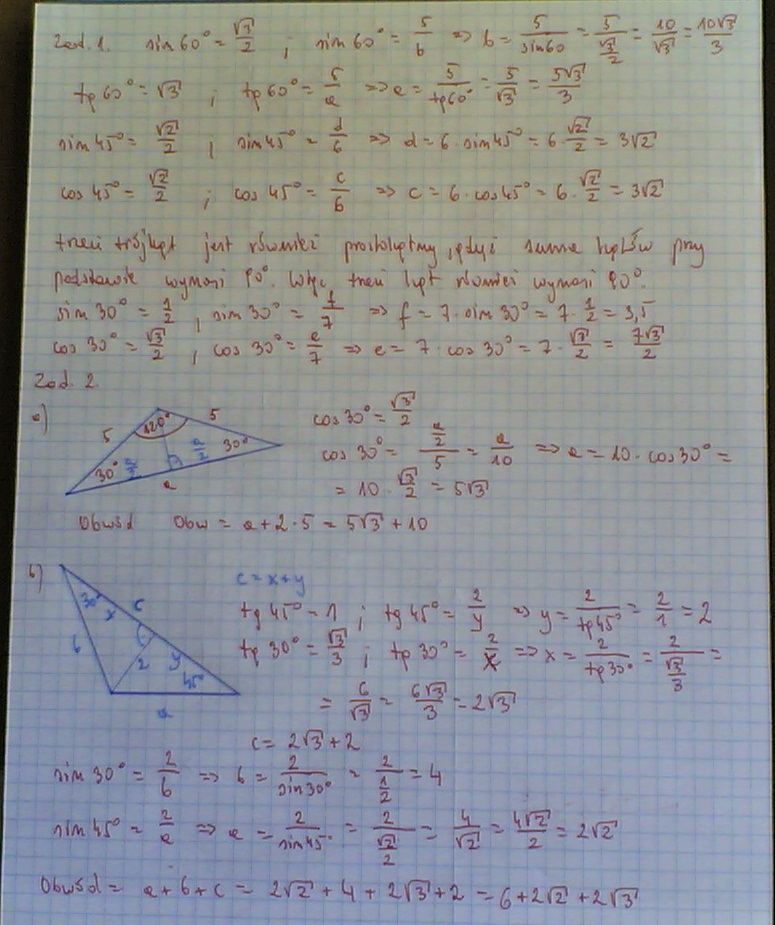 Zad. 1. sin 60° = √3/2 ; sin 60° = 5/b => b = 5/sin60 = 5/(√3/2) = 10/√3 = 10√3/3
tg 60° = √3 ; tg 60° = 5/a => a = 5/tg60° = 5/√3 = 5√3/3
sin 45° = √2/2 ; sin 45° = d/6 => d = 6 · sin 45° = 6 · √2/2 = 3√2
cos 45° = √2/2 ; cos 45° = c/6 => c = 6 · cos 45° = 6 · √2/2 = 3√2
trzeci trójkąt jest również prostokątny, gdyż suma kątów przy
podstawie wynosi 90°. Więc trzeci kąt również wynosi 90°.
sin 30° = 1/2 , sin 30° = f/7 => f = 7 · sin 30° = 7 · 1/2 = 3,5
cos 30° = √3/2 , cos 30° = e/7 => e = 7 · cos 30° = 7 · √3/2 = 7√3/2
Zad. 2
a)
5
120°
5
30°
a/2
a/2
30°
a
cos 30° = √3/2
cos 30° = (a/2)/5 = a/10 => a = 10 · cos 30° =
= 10 · √3/2 = 5√3
Obwód Obw = a + 2 · 5 = 5√3 + 10
b)
30°
x
c
b
2
y
45°
a
c = x + y
tg 45° = 1 ; tg 45° = 2/y => y = 2/tg45° = 2/1 = 2
tg 30° = √3/3 ; tg 30° = 2/x => x = 2/tg30° = 2/(√3/3) =
= 6/√3 = 6√3/3 = 2√3
c = 2√3 + 2
sin 30° = 2/b => b = 2/sin30° = 2/(1/2) = 4
sin 45° = 2/a => a = 2/sin45° = 2/(√2/2) = 4/√2 = 4√2/2 = 2√2
Obwód = a + b + c = 2√2 + 4 + 2√3 + 2 = 6 + 2√2 + 2√3